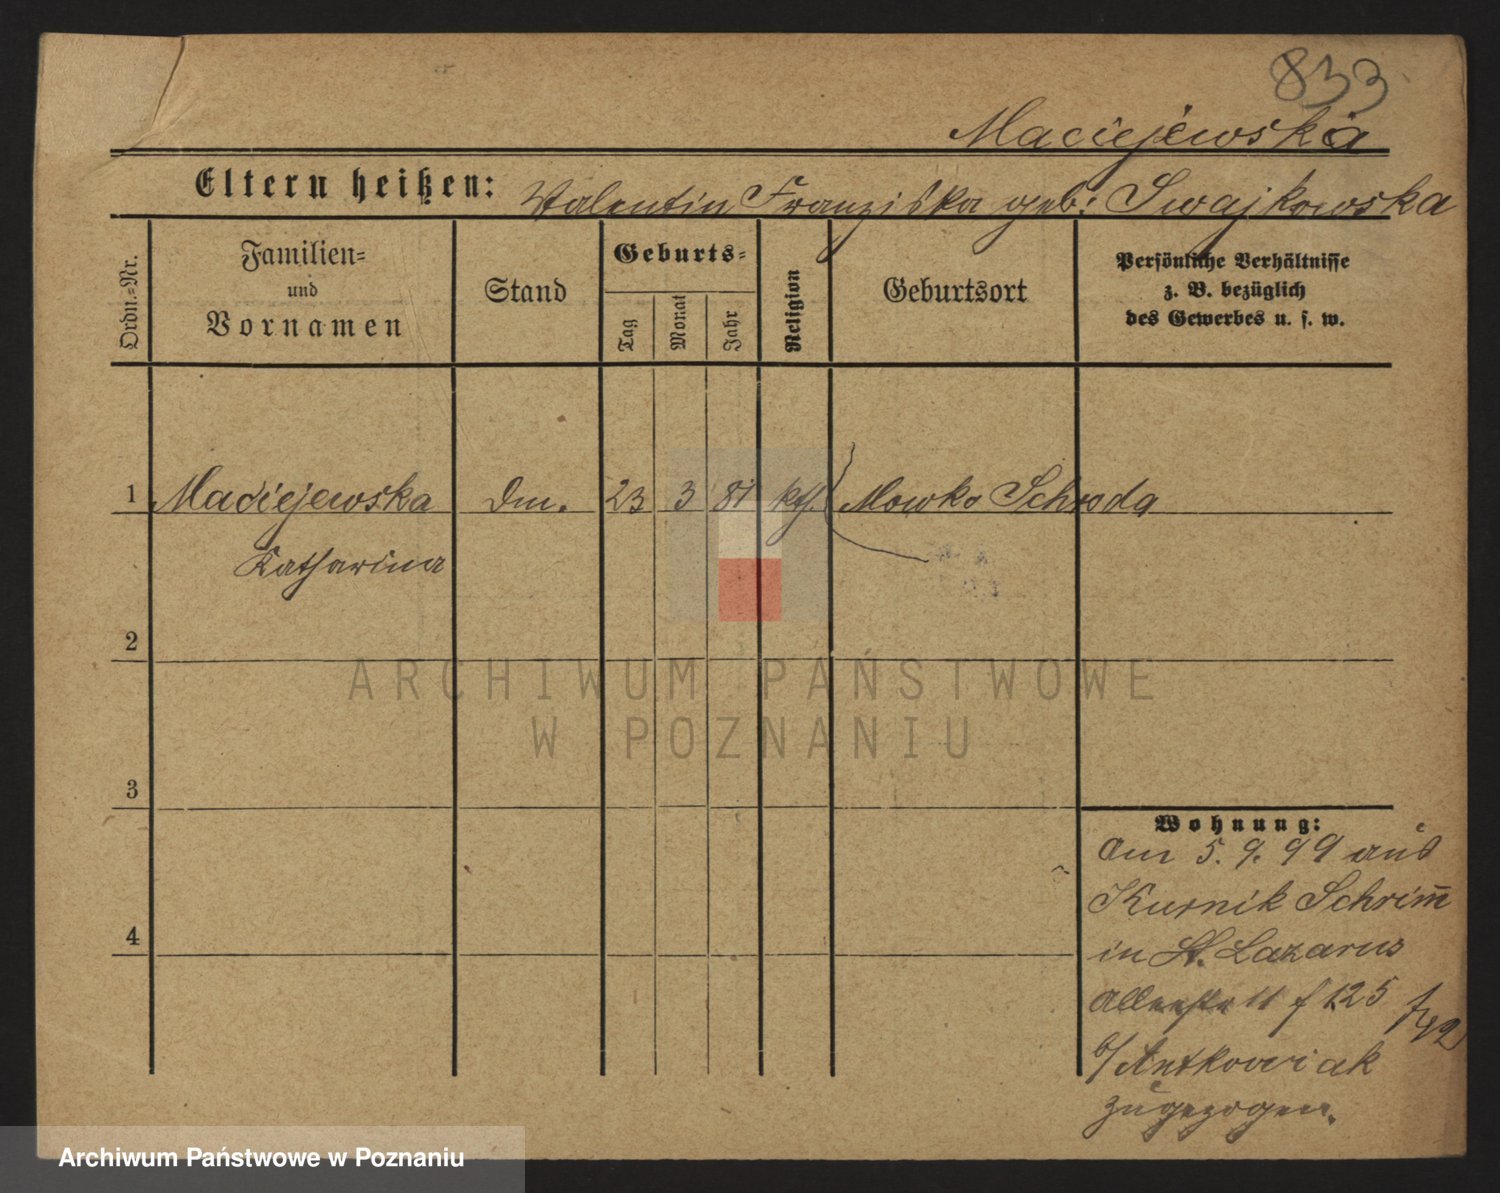 833
Maciejewska
Eltern heißen: Valentin Franziska geb: Swajkowska
Ordn.=Nr.
Familien=
und
Vornamen
Stand
Geburts=
Tag
Monat
Jahr
Religion
Geburtsort
Persönliche Verhältnisse
z. B. bezüglich
des Gewerbes u. s. w.
1 Maciejewska Dm. 23 3 81 kth. Mowko Schroda
Katharina
2
ARCHIWUM PAŃSTWOWE
W POZNANIU
3
Wohnung:
Am 5. 9. 99 aus
Kurnik Schrim̅
in St. Lazarus
11 f 125
b/ Antkowiak
zugezogen.
4
Archiwum Państwowe w Poznaniu